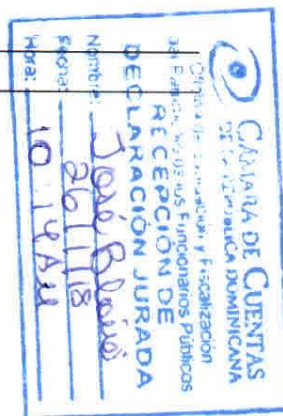 CÁMARA DE CUENTAS
DE LA REPÚBLICA DOMINICANA
Oficina de Evaluación y Fiscalización
del Patrimonio de los Funcionarios Públicos
RECEPCIÓN DE
DECLARACIÓN JURADA
Nombre: José
Fecha: 26/1/18
Hora: 10:14AM